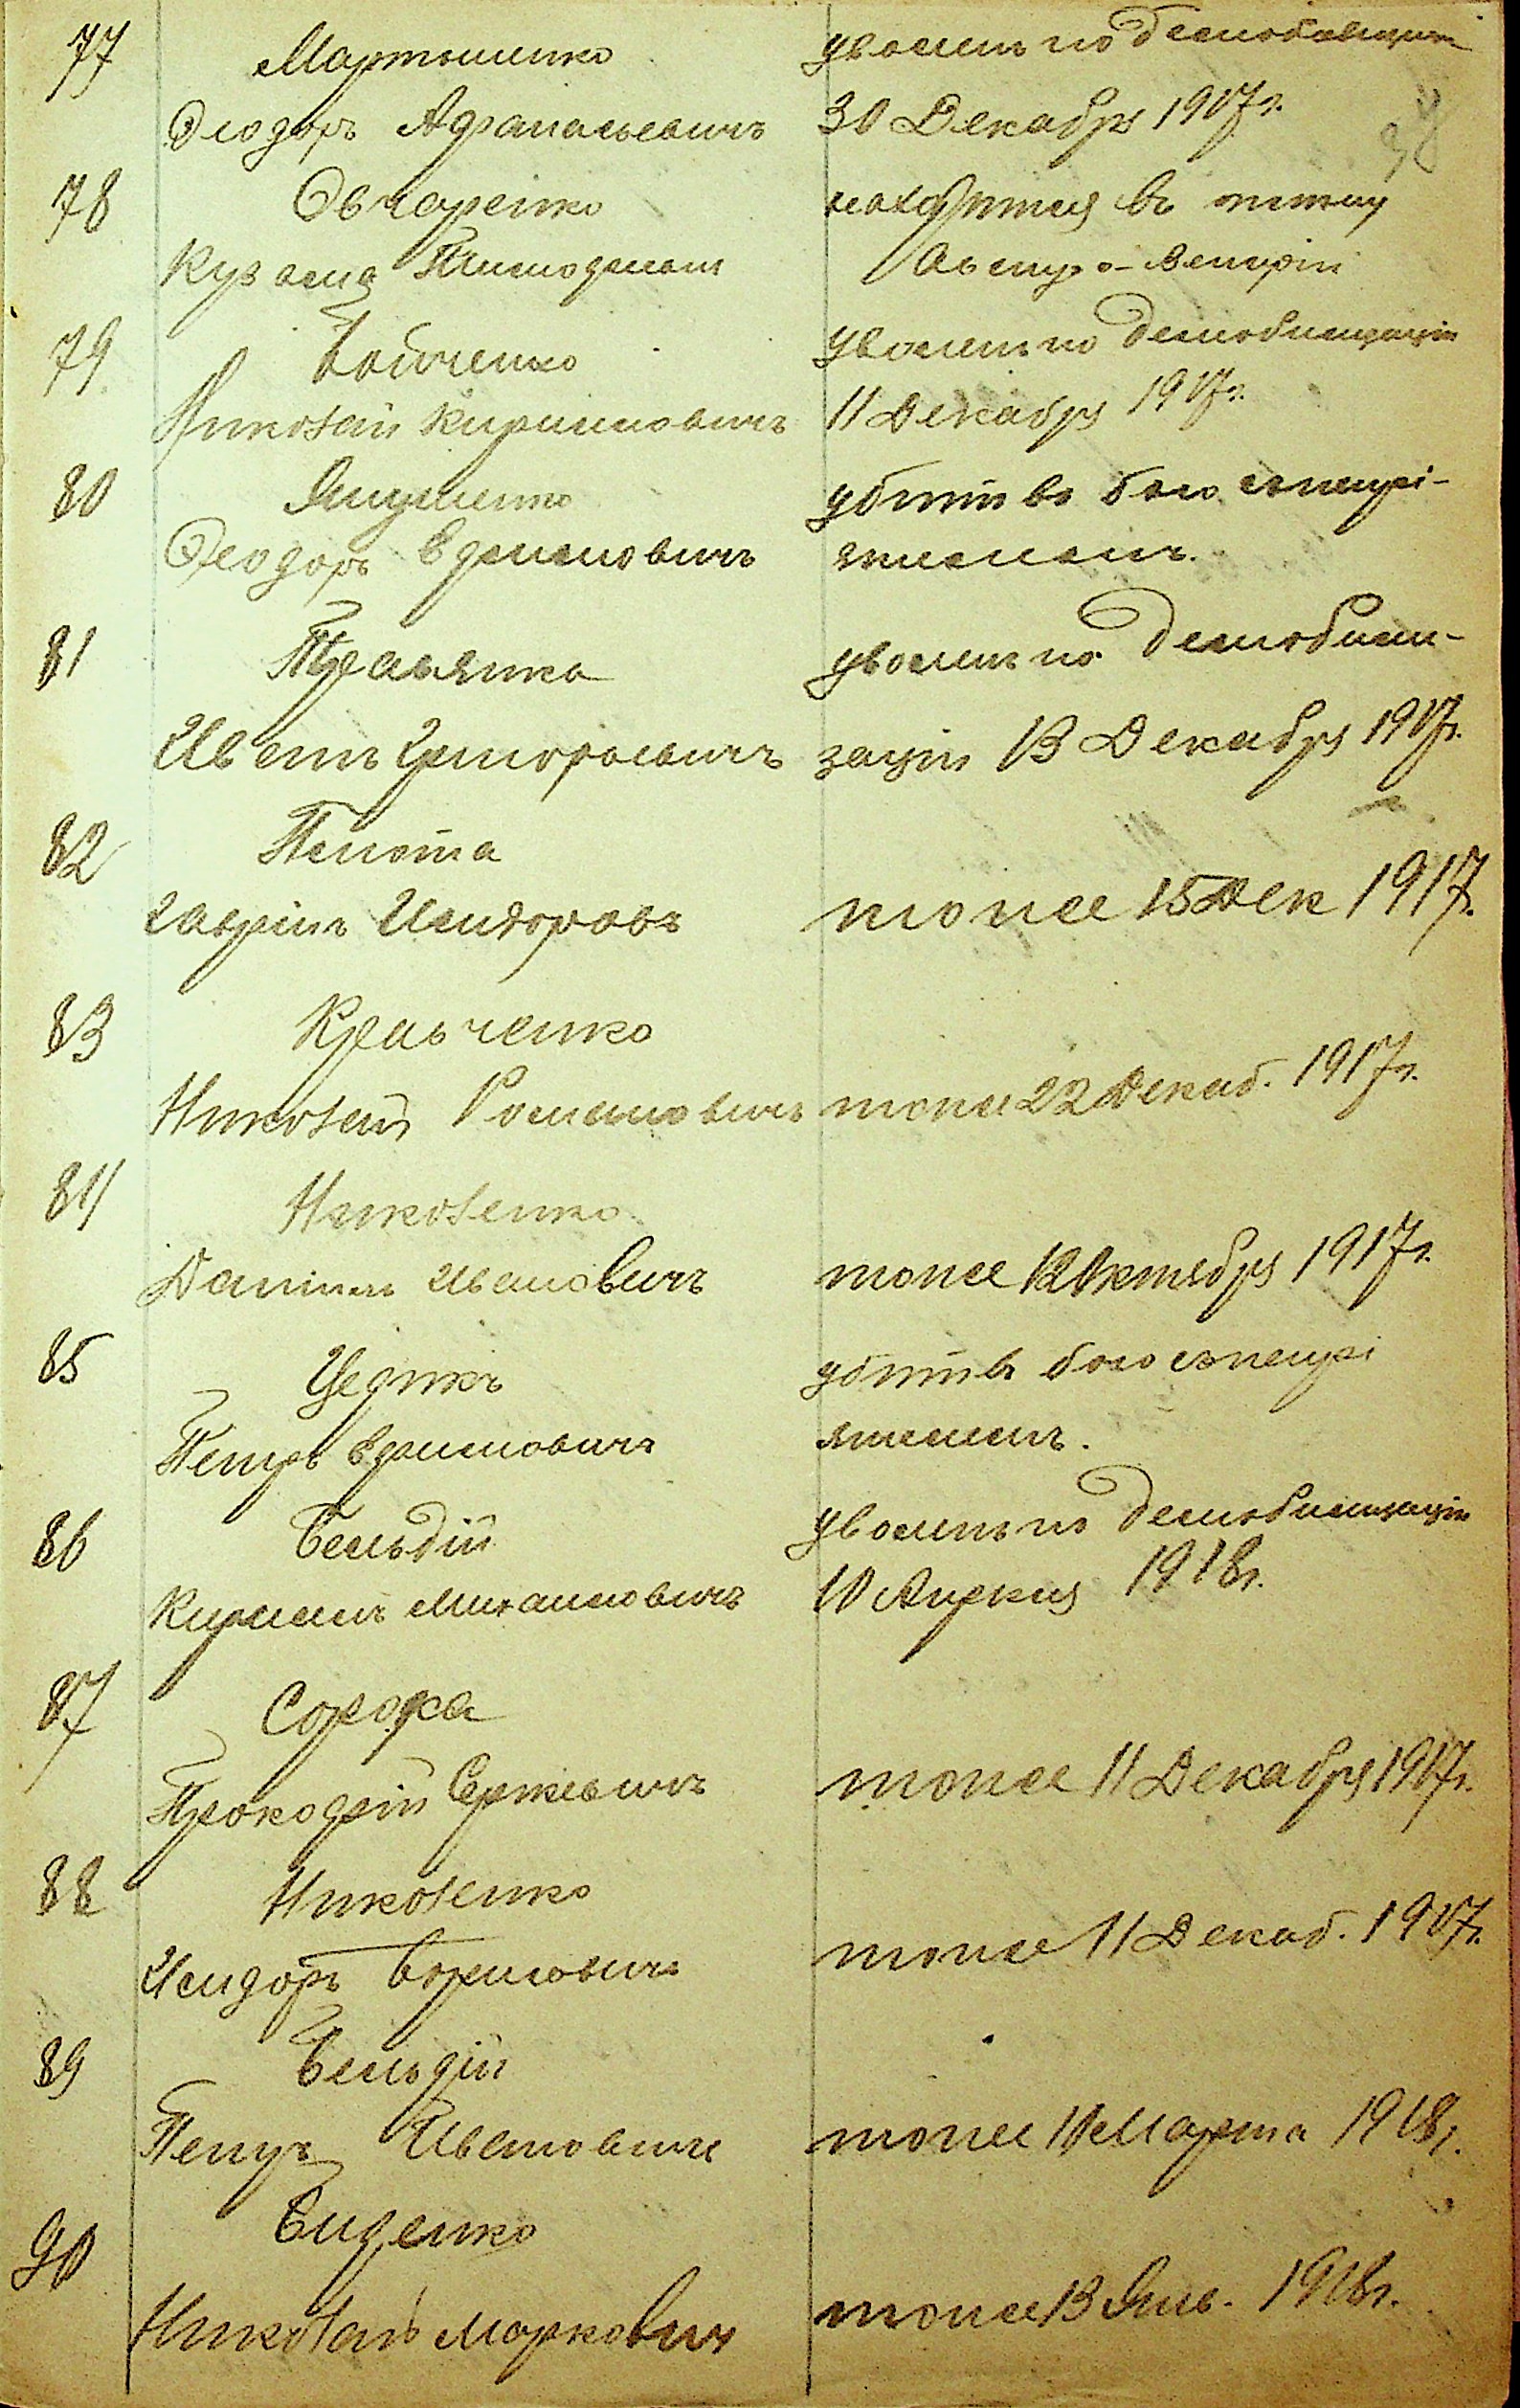 77 Мартыненко уволенъ по демобилизаціи
Ѳеодоръ Афанасьевичъ 30 Декабря 1917 г.
78 Овчаренко находится въ плѣну
Кузьма Австро-Венгріи
79 Бойченко уволенъ по демобилизаціи
Николай Кирилловичъ 11 Декабря 1917 г.
80 Ющенко убитъ въ бою съ непрі-
Ѳеодоръ Ефимовичъ ятелемъ.
81 уволенъ по демобили-
Иванъ Григорьевичъ заціи 13 Декабря 1917 г.
82 Пелюта
Гавріилъ Исидоровъ тоже 15 Дек 1917 г.
83 Кравченко
Николай Романовичъ тоже 22 Декаб. 1917 г.
84 Николенко
Даніилъ Ивановичъ тоже 12 Октября 1917 г.
85 убитъ въ бою съ непрі
Петръ Ефимовичъ ятелемъ.
86 Бельдій уволенъ по демобилизаціи
Кириллъ Михаиловичъ 10 Апрѣля 1918 г.
87 Сорока
Прокофій Сергѣевичъ тоже 11 Декабря 1917 г.
88 Николенко
Исидоръ Борисовичъ тоже 11 Декаб. 1917 г.
89 Бельдій
Петръ Ивановичъ тоже 10 Марта 1918 г.
90 Биденко
Николай Марковичъ тоже 13 Янв. 1918 г.